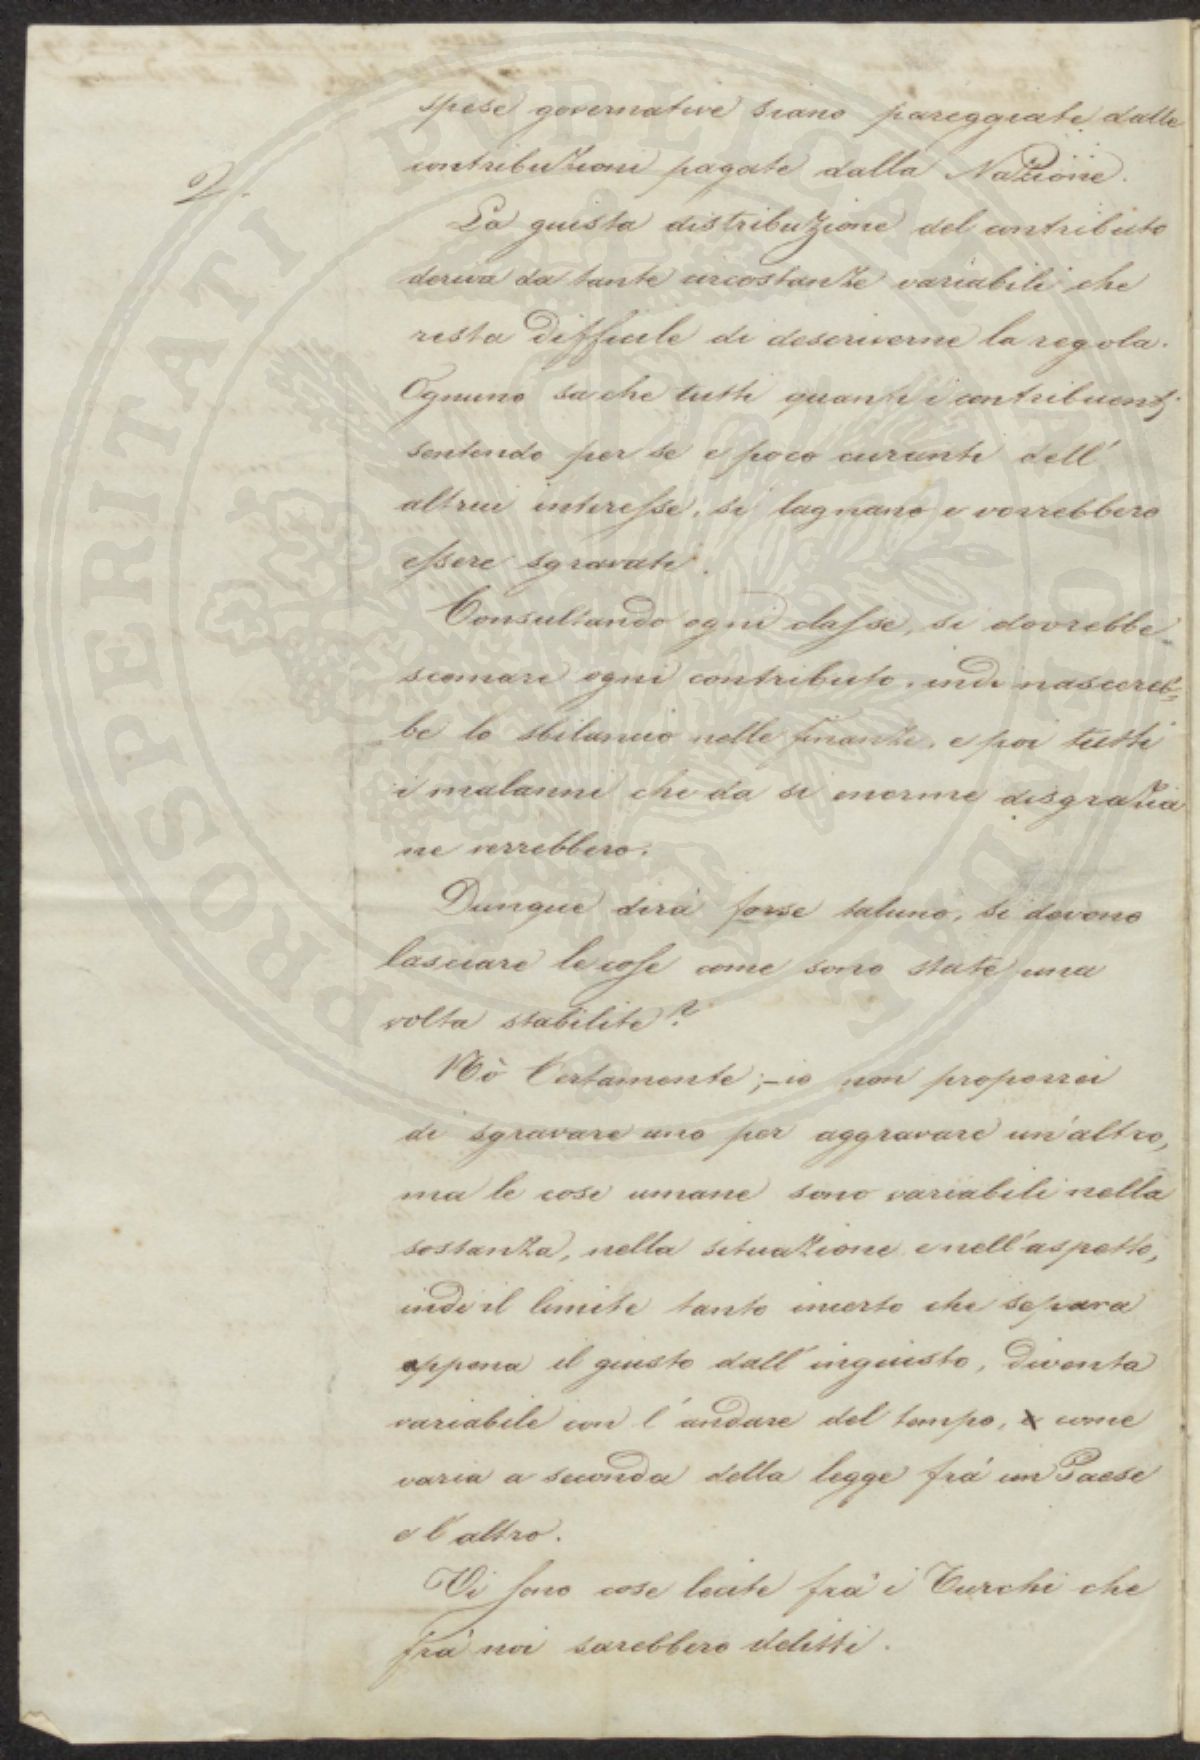 spese governative siano pareggiate dalle
contribuzioni pagate dalla Nazione.
2.
La guista distribuzione del contributo
deriva da tante circostanze variabili che
resta difficile di descriverne la regola.
Ognuno sa che tutti quanti i contribuenti
sentendo per se e poco curanti dell'
altrui interesse, si lagnano e vorrebbero
essere sgravati.
Consultando ogni classe, si dovrebbe
scemare ogni contributo, indi nascereb=
be lo sbilancio nelle finanze, e poi tutti
i malanni che da si enorme disgrazia
ne verrebbero.
Dunque dirà forse taluno, si devono
lasciare le cose come sono state una
volta stabilite?
Nò Certamente; - io non proporrei
di sgravare uno per aggravare un'altro,
ma le cose umane sono variabili nella
sostanza, nella situazione e nell'aspetto,
indi il limite tanto incerto che separa
appena il giusto dall'inguisto, diventa
variabile con l'andare del tempo, e come
varia a seconda della legge frà un Paese
e l'altro.
Vi sono cose lecite frà i Turchi che
frà noi sarebbero delitti.
PROSPERITATI PUBLICAE